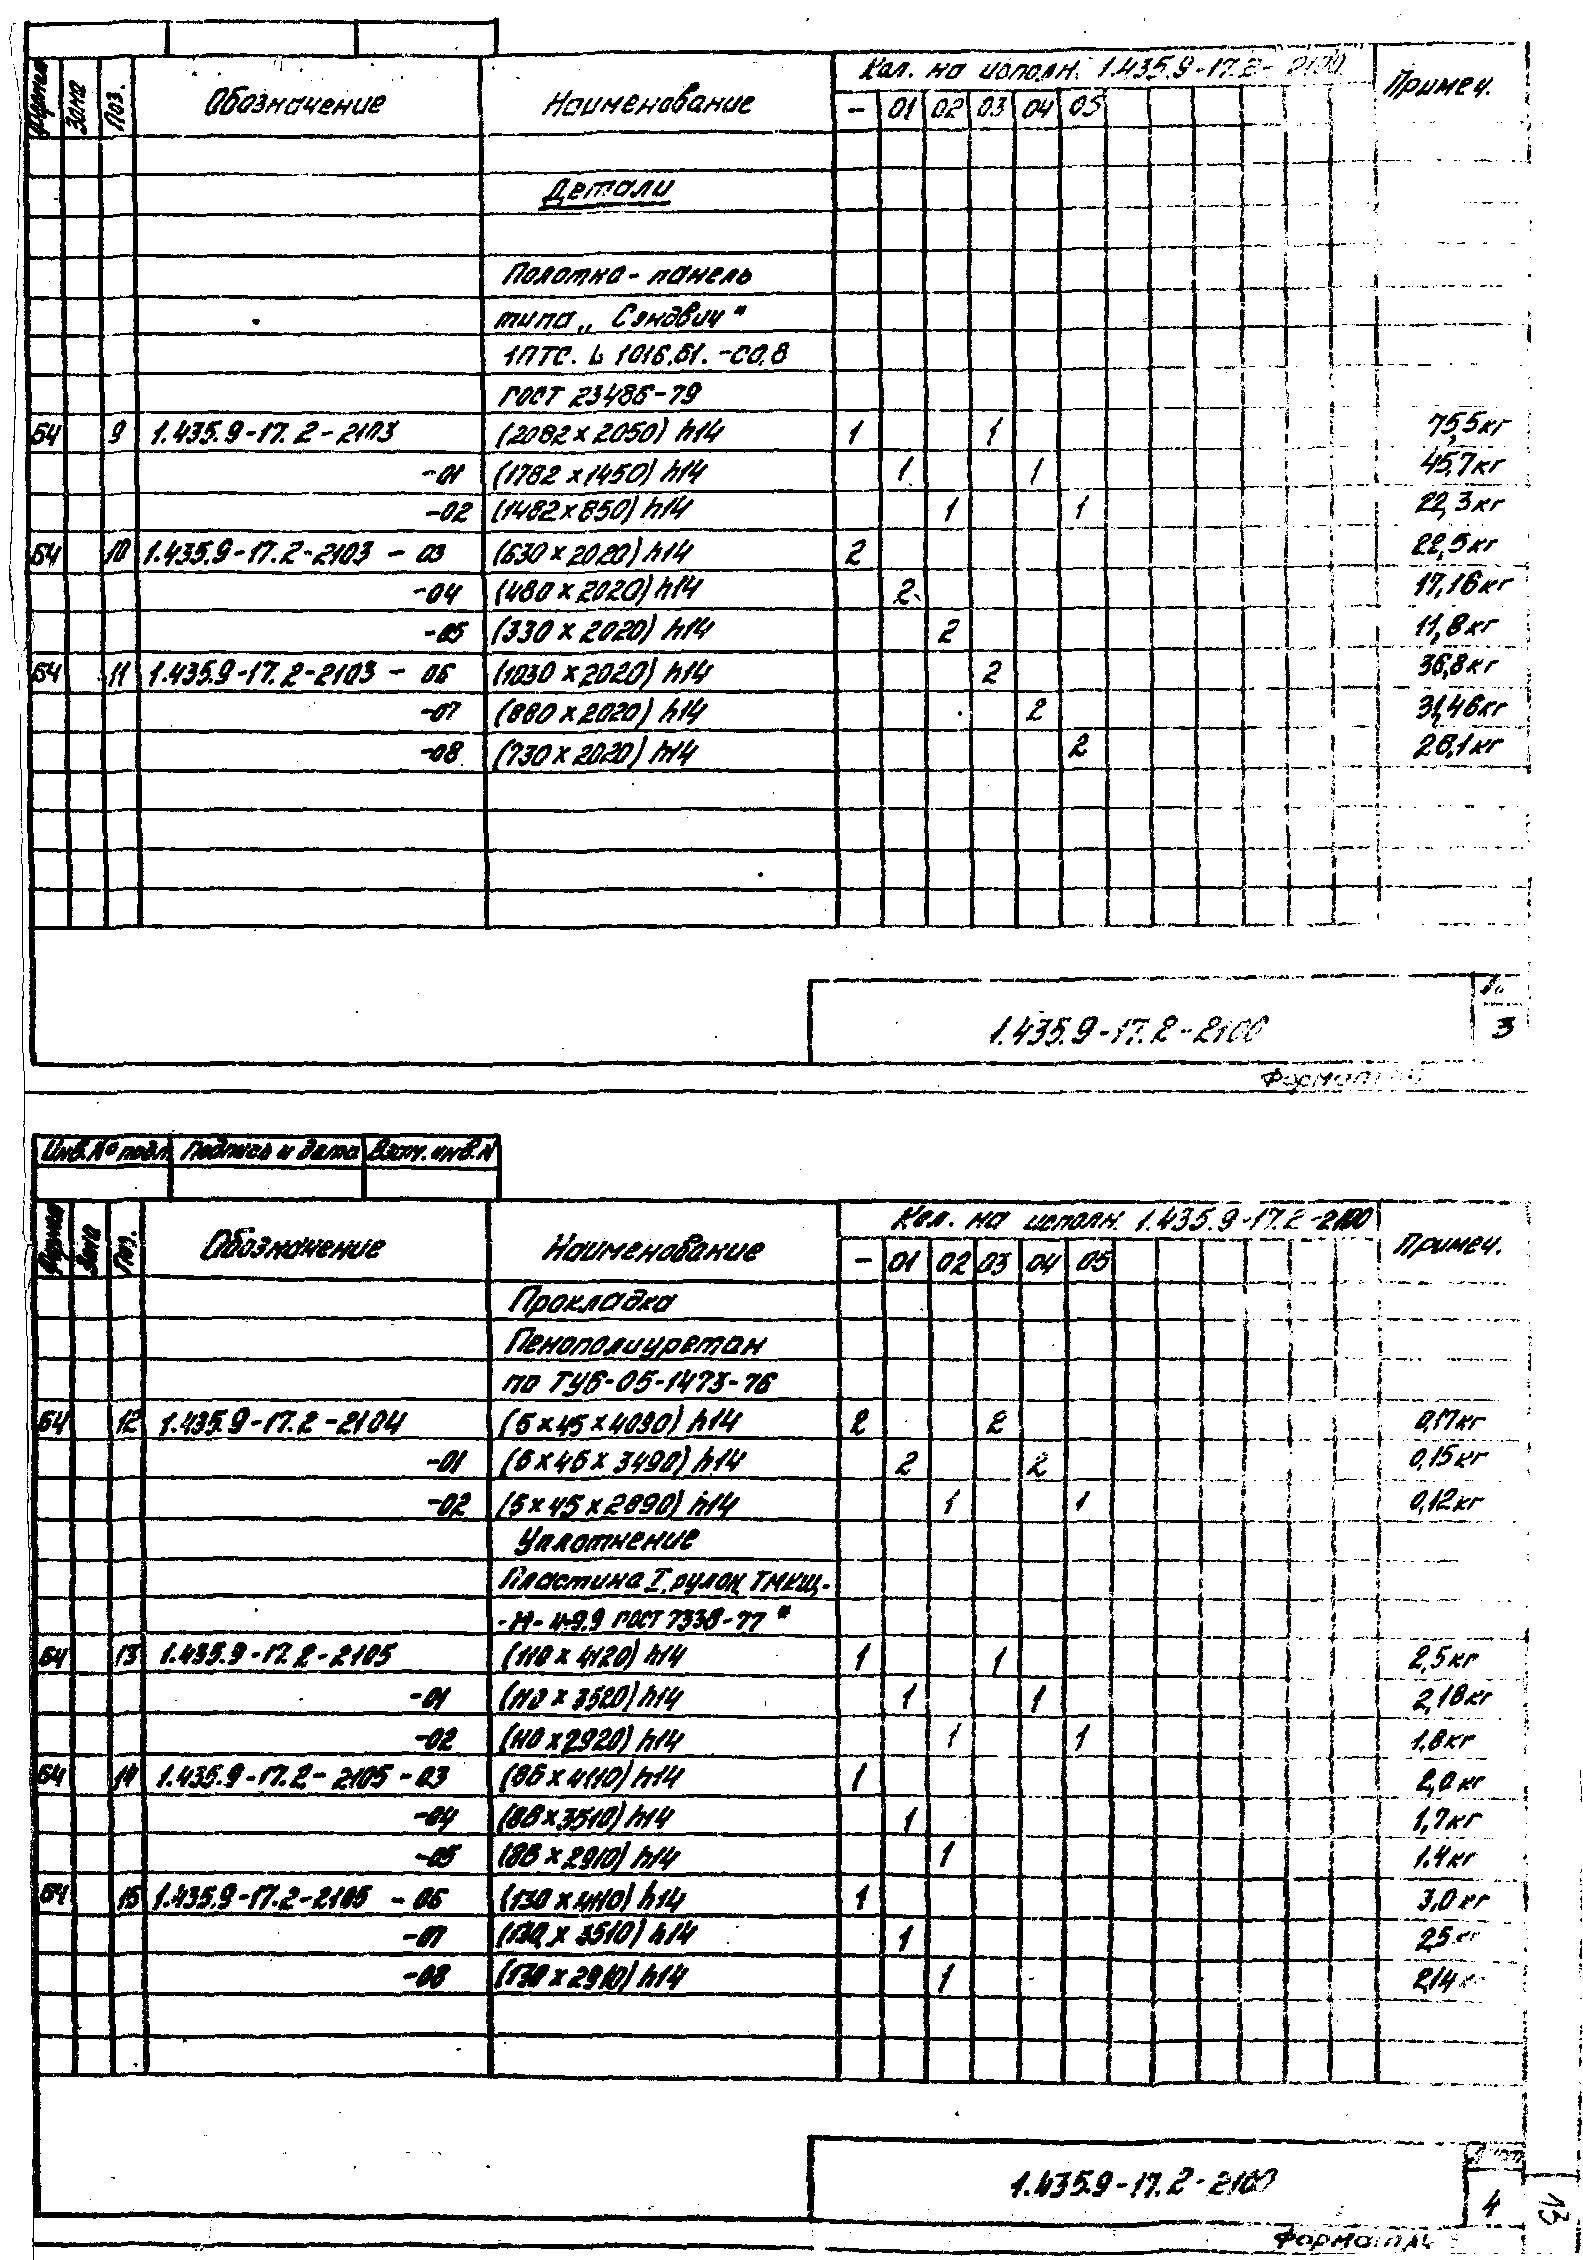 Формат Зона Поз. Обозначение Наименование Кол. на исполн. 1.435.9-17.2-2100 Примеч.
- 01 02 03 04 05
Детали
Полотна-панель
типа „Сэндвич"
1ПТС. L 1016.61.-СО,8
ГОСТ 23486-79
БЧ 9 1.435.9-17.2-2103 (2082×2050) h14 1 1 75,5кг
-01 (1782×1450) h14 1 1 45,7кг
-02 (1482×850) h14 1 1 22,3кг
БЧ 10 1.435.9-17.2-2103 - 03 (630×2020) h14 2 22,5кг
-04 (480×2020) h14 2 17,16кг
-05 (330×2020) h14 2 11,8кг
БЧ 11 1.435.9-17.2-2103 - 06 (1030×2020) h14 2 36,8кг
-07 (880×2020) h14 2 31,46кг
-08 (730×2020) h14 2 26,1кг
1.435.9-17.2-2100
3
Формат
Инв.№ подл. Подпись и дата Взам. инв.N
Формат Зона Поз. Обозначение Наименование Кол. на исполн. 1.435.9-17.2-2100 Примеч.
- 01 02 03 04 05
Прокладка
Пенополиуретан
по ТУ6-05-1473-76
БЧ 12 1.435.9-17.2-2104 (5×45×4090) h14 2 2 0,17кг
-01 (5×45×3490) h14 2 2 0,15кг
-02 (5×45×2890) h14 1 1 0,12кг
Уплотнение
Пластина I, рулон ТМКЩ-
-М-4×9,9 ГОСТ 7338-77"
БЧ 13 1.435.9-17.2-2105 (110×4120) h14 1 1 2,5кг
-01 (110×3520) h14 1 1 2,18кг
-02 (110×2920) h14 1 1 1,8кг
БЧ 14 1.435.9-17.2-2105-03 (86×4110) h14 1 2,0кг
-04 (86×3510) h14 1 1,7кг
-05 (86×2910) h14 1 1.4кг
БЧ 15 1.435.9-17.2-2105 - 06 (130×4110) h14 1 3,0кг
-07 (130×3510) h14 1 2,5кг
-08 (130×2910) h14 1 2,14к
1.435.9-17.2-2100
4
13
Формат А4